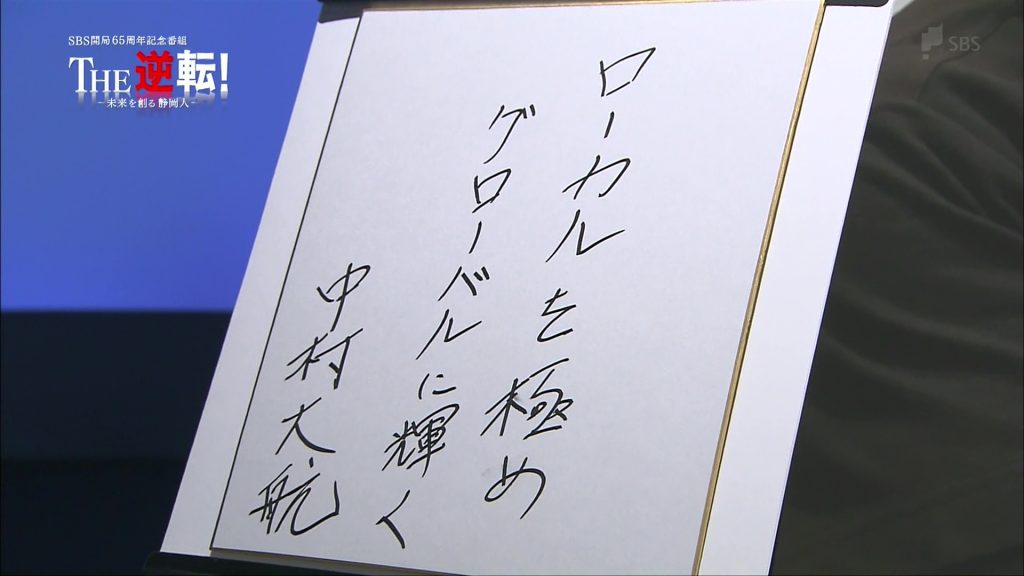 SBS開局65周年記念番組
THE逆転!
-未来を創る静岡人-
SBS
ローカルを極め
グローバルに輝く
中村大航